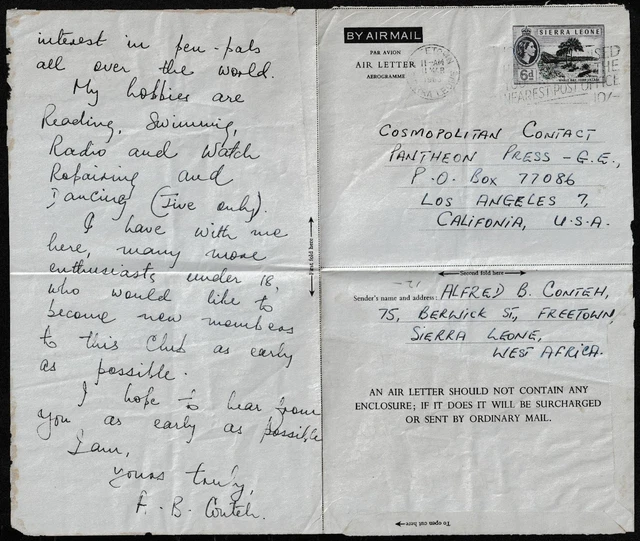 interest in pen-pals
all over the world.
My hobbies are
Reading, Swimming,
Radio and Watch
Repairing and
Dancing (Jive only).
I have with me
here, many more
enthusiasts under 18,
who would like to
become new members
to this Club as early
as possible.
I hope to hear from
you as early as possible
I am,
yours truly,
A. B. Conteh.
First fold here
BY AIR MAIL
PAR AVION
AIR LETTER
AEROGRAMME
11-AM
SIERRA LEONE
6d
NEAREST POST OFFICE
10/-
COSMOPOLITAN CONTACT
PANTHEON PRESS - G.E.,
P.O. BOX 77086
LOS ANGELES 7,
CALIFONIA, U.S.A.
Second fold here
Sender's name and address: ALFRED B. CONTEH,
75, BERWICK ST., FREETOWN,
SIERRA LEONE,
WEST AFRICA.
AN AIR LETTER SHOULD NOT CONTAIN ANY
ENCLOSURE; IF IT DOES IT WILL BE SURCHARGED
OR SENT BY ORDINARY MAIL.
To open cut here